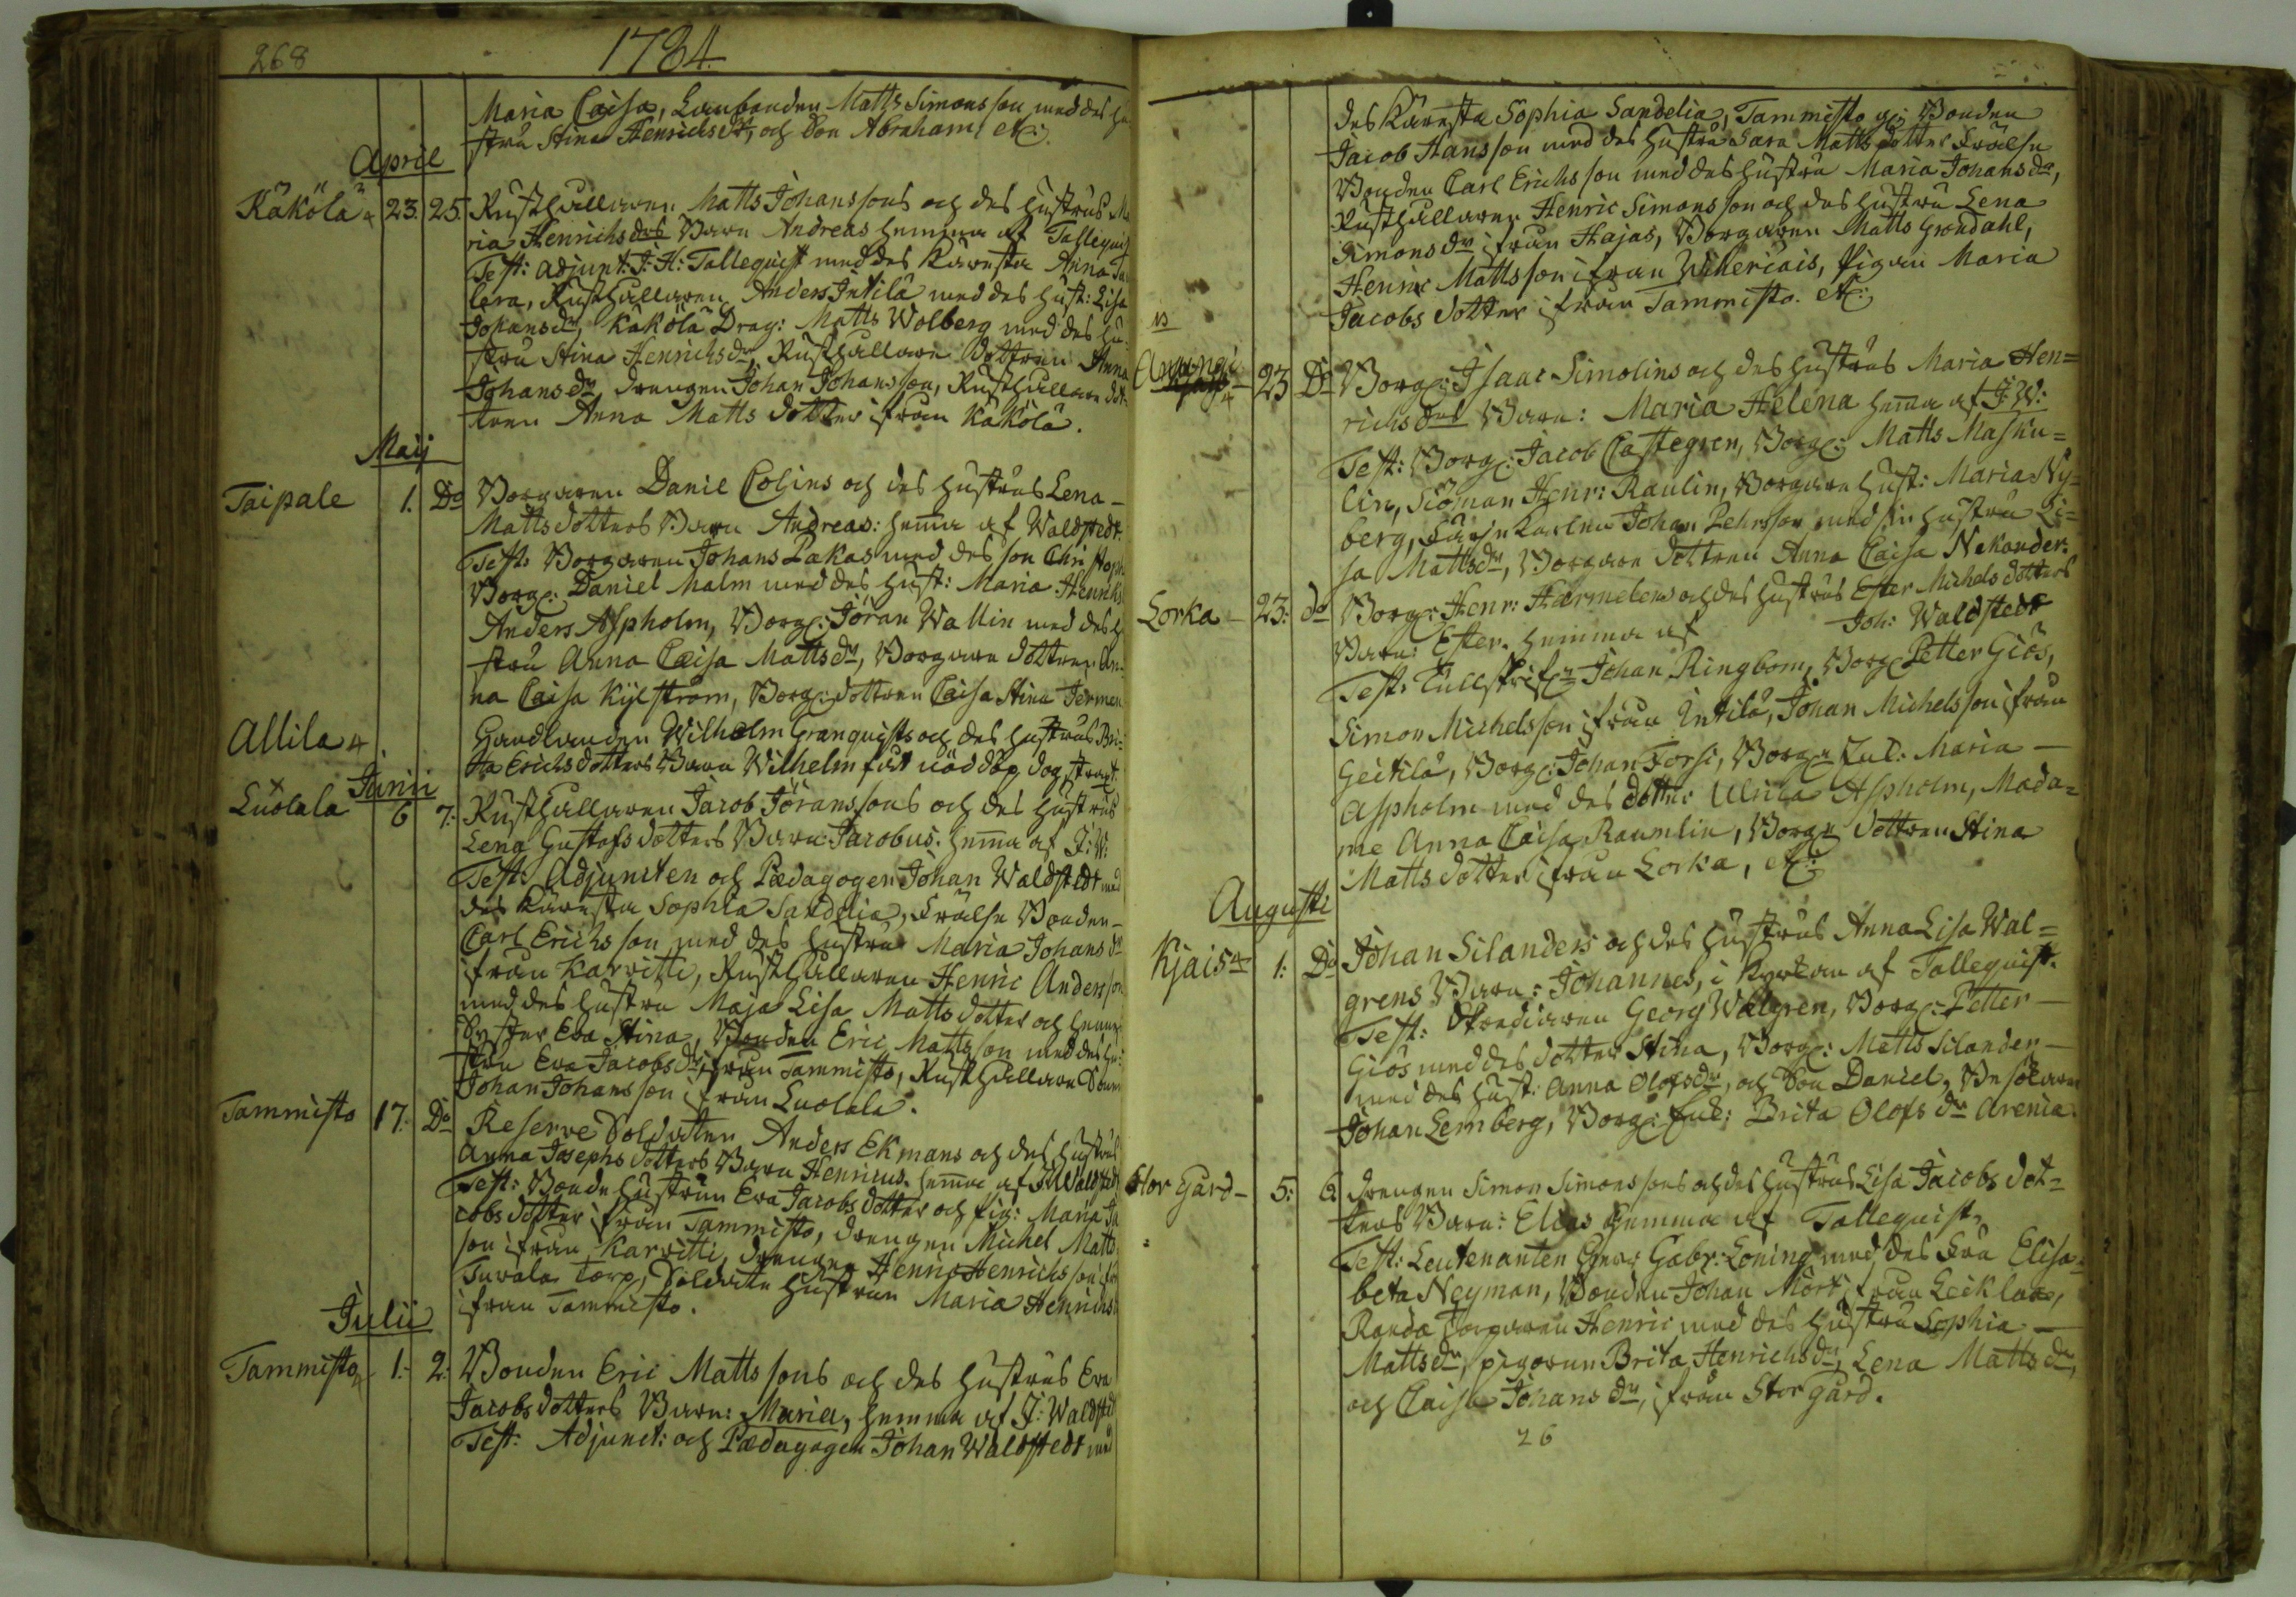 268
1784.
Maria Caisa, Lanbonden Matts Simonsson med des hu
stru Stina Henrichsdr, och Son Abraham etc:
April
Käkölä 23. 25. Rusthållaren Matts Johanssons och des hustrus Ma
ria Henrichsdrs Barn Andreas hemma af Tallequist
Test: Adjunt: J: H: Tallequist med des Käresta Anna
lera, Rusthållaren Anders Intilä med des hust: Lisa
Johansdr, Käkölä Drag: Matts Wolberg med des hu
stru Stina Henrichsdr, Rusthållare Dottren Anna
Johansdr, drengen Johan Johansson, Rusthållare dot
tren Anna Matts dotter ifrån Käkölä.
Maij
Taipale 1. Do Borgaren Daniel Colins och des hustrus Lena
Mattsdotters Barn Andreas: hema af Waldstedt.
Test: Borgaren Johans Pakas med des son Christoph
Borg: Daniel Malm med des hust: Maria Henrichs
Anders Aspholm, Borg: Jöran Wallin med des hu
stru Anna Caisa Mattsdr, Borgare dottren An
na Caisa Kylström, Borg: dottren Caisa Stina Jermen
Allila Handlanden Wilhelm Granquists och des hustrus Bri
ta Erichsdotters Barn Wilhelm fåt nöddop, dog straxt.
Junii
Luolala 6 7. Rusthållaren Jacob Jöranssons och des hustrus
Lena Gustafsdotters Barn Jacobus. hema af J: W:
Test: Adjuncten och Pædagogen Johan Waldstedt med
des Käresta Sophia Sandelia, Frälse Bonden
Carl Erichsson med des hustru Maria Johansdr
ifrån Karvitti, Rusthållaren Henric Andersson
med des hustru Maja Lisa Matts dotter och hennes
Syster Eva Stina, Bonden Eric Mattsson med des hu
stru Eva Jacobsdr ifrån Tammisto, Rusthållare Sonen
Johan Johansson ifrån Luolala.
Tammisto 17. Do Reserve Soldaten Anders Ekmans och des hustrus
Anna Josephs dotters Barn Henricus. hema af J Waldstedt
Test: Bonde hustrun Eva Jacobs dotter och Pig: Maria Ja
cobs dotter ifrån Tammisto, drengen Michel Matts
son ifrån Karvitti, drengen Henric Henrichsson ifr
Tuvala Torp, Soldate hustrun Maria Henrichs
ifrån Tammisto.
Julii
Tammisto 1. 2. Bonden Eric Mattssons och des hustrus Eva
Jacobsdotters Barn: Maria, hemma af J: Waldstedt
Test: Adjunct: och Pædagogen Johan Waldstedt med
des Käresta Sophia Sandelia, Tammisto g: Bonden
Jacob Hansson med des hustru Sara Matts dotter Frälse
Bonden Carl Erichsson med des hustru Maria Johansdr,
Rusthållaren Henric Simonsson och des hustru Lena
Simonsdr ifrån Hajas, Borgaren Matts Grondahl,
Henric Mattsson ifrån Wiheriais, Pigan Maria
Jacobs dotter ifrån Tammisto. etc:
23 Do Borg: Isaac Simolins och des hustrus Maria Hen=
richsdrs Barn: Maria Helena hema af J: W:
Test: Borg: Jacob Castegren, Borg: Matts Masku=
lin, Siöman Henr: Raulin, Borgare hust: Maria Ny=
berg, Johan Pehrsson med sin hustru Li=
sa Mattsdr, Borgare dottren Anna Caisa Nekander.
Lorka 23: do Borg: Henr: Harmelens och des hustrus Ester Michels dotters
Barn: Ester. hemma af Joh: Waldstedt
Test: Tullskrifn Johan Ringbom, Borg Petter Giös,
Simon Michelsson ifrån Intilä, Johan Michelsson ifrån
Geitilä, Borg: Johan Forss, Borge Enk: Maria
Aspholm med des dotter Ulrica Aspholm, Mada=
me Anna Caisa Raumlin, Borge dottren Stina
Matts dotter ifrån Lorka, etc:
Augusti
Kjais 1: Do Johan Silanders och des hustrus Anna Lisa Wal=
grens Barn: Johannes, i Kyrkan af Tallequist.
Test: Georg Walgren, Borg: Petter
Giös med des dotter Stina, Borg: Matts Silander
med des hust: Anna Olofsdr, och Son Daniel,
Johan Lemberg, Borg: Enk: Brita Olofs dr Arenia
Stor Gård 5: 6 Drengen Simon Simonssons och des hustrus Lisa Jacobs dot=
ters Barn: Elias hemma af Tallequist,
Test: Leutenanten Gabr: Loning med des Fru Elisa=
beta Neyman, Bonden Johan Mört ifrån Leiklax,
Randa Torparen Henric med des hustru Sophia
Mattsdr, pigorne Brita Henrichsdr, Lena Matts dr,
och Caisa Johansdr, ifrån Storgård.
26